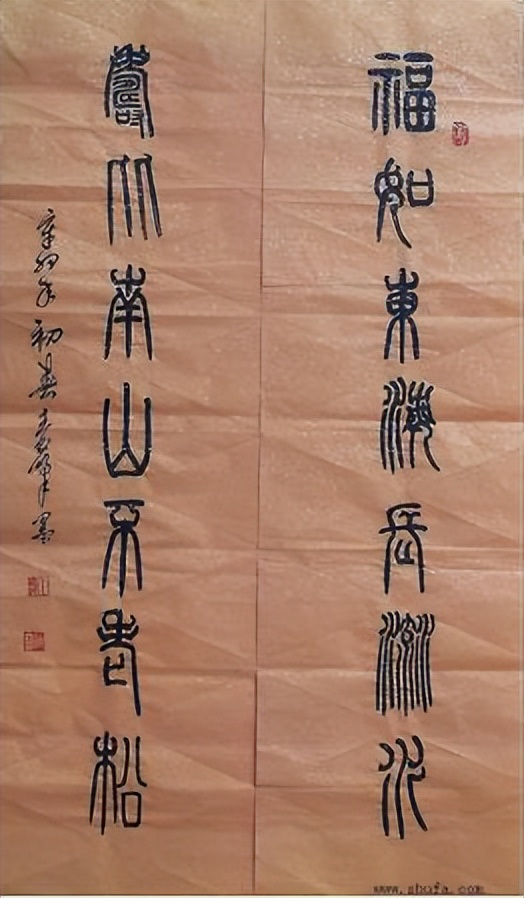 福如東海長流水
壽比南山不老松
辛卯年初春
www.shufa.com